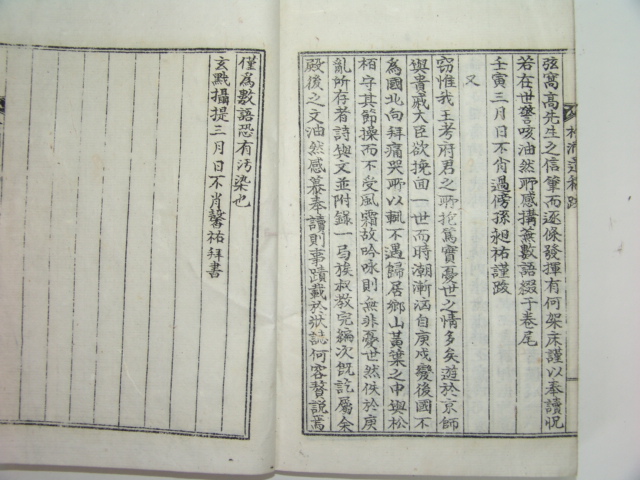 弦窩高先生之信筆而逐條發揮有何架床謹以奉讀怳
若在世謦咳油然所感搆蕪數語綴于卷尾
壬寅三月日不肖過傍孫昶祐謹跋
又
窃惟我王考府君之所抱篤實憂世之情多矣遊於京師
與貴戚大臣欲挽回一世而時潮漸溺自庚戌變後國不
為國北向拜痛哭所以輒不遇歸居鄉山黃葉之中與松
栢守其節操而不受風霜故吟咏則無非憂世然佚於庚
亂所存者詩與文並附錄一局族叔教完編次旣訖屬余
殿後之文油然感慕奉讀則事蹟載於狀誌何容贅說焉
僅為數語恐有汚染也
玄黓攝提三月日不肖馨祐拜書